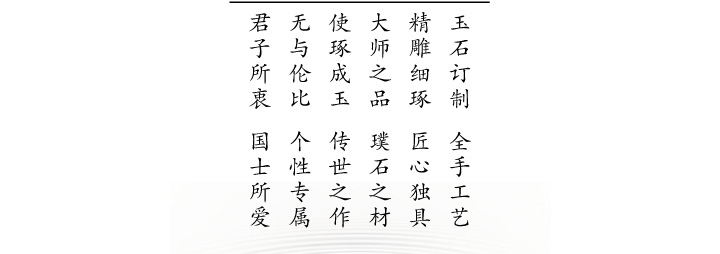 玉石订制 全手工艺
精雕细琢 匠心独具
大师之品 璞石之材
使琢成玉 传世之作
无与伦比 个性专属
君子所衷 国士所爱